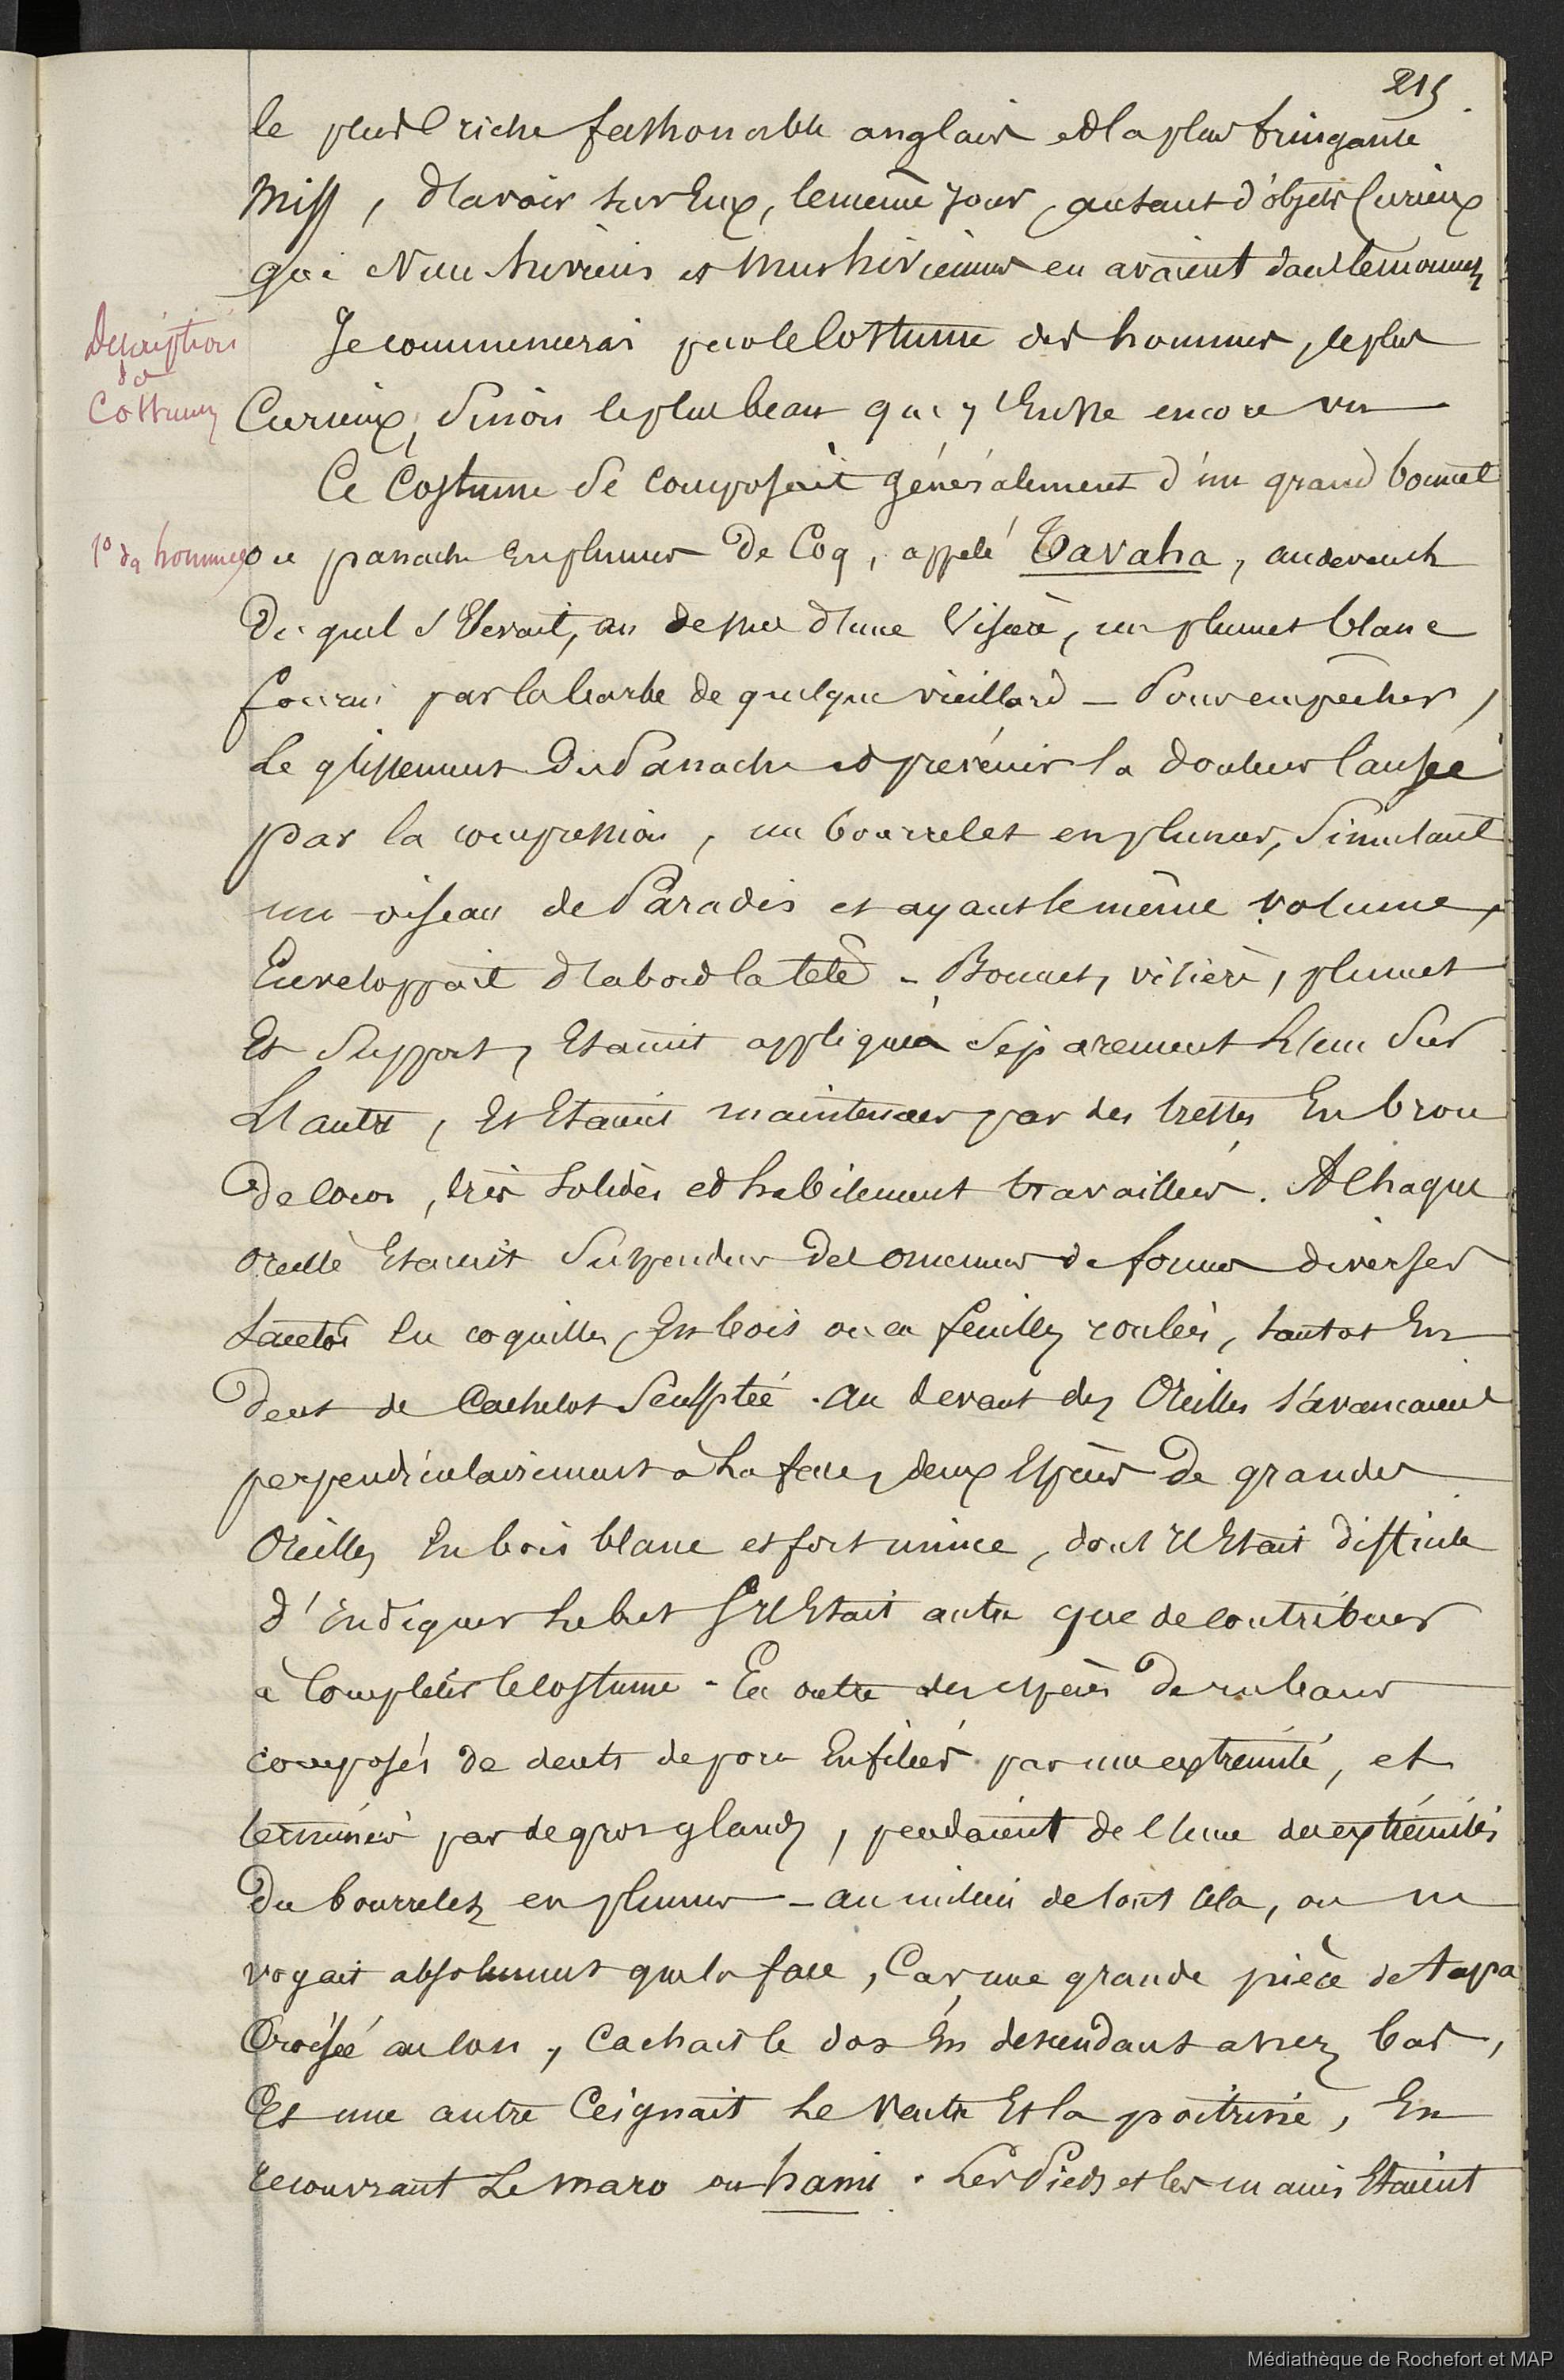 215
le plus riche fashonable anglais et la plus fringante
Miss, d'avoir sur Eux, le meme jour, autant d'objets Curieux
que Nuu hiviens et Nus hiviennes en avaient dans le moment
Description
de
Costumes
Je commencerai par le Costume des hommes, le plus
Curieux, Sinon le plus beau que j'Eusse encore vu
Ce Costume Se composait généralement d'un grand bonnet
1º des hommes
ou panache En plumes De Coq, appelé Tavaha, au devant
Du quel s'Elevait, au dessus d'une Visière, un plumet blanc
fourni par la barbe de quelque vieillard — Pour empêcher,
Le glissement Du Panache et prévenir la douleur Causée
par la compression, un bourrelet en plumes, Simulant
un oiseau de Paradis et ayant le même volume,
Enveloppait d'abord la tete - Bonnet, visière, plumet
Et Support, Etaient appliqués Séparement L'un Sur
L'autre, Et Etaient maintenues par des tresses En brou
De Coco, très Solides et habilement travaillées. A Chaque
oreille Etaient Suspendus Des ornemens de formes diverses
tantot En coquilles, En bois ou en feuilles roulées, tantot En
Dent de Cachelot Sculptée. Au devant des Oreilles s'avancaient
perpendiculairement à La face, deux Espèces De grandes
Oreilles En bois blanc et fort mince, dont Il Etait difficile
d'indiquer Le but S'Il Etait autre que de contribuer
a Completer le Costume - En outre des espèces De rubans
composés de dents de porc Enfilées par une extremité, et
terminés par de gros glands, pendaient de l'une des extrémités
Du bourrelet en plumes — au milieu de tout Cela, on ne
voyait absolument que la face, Car une grande pièce de tapa
Croisée au Cou, Cachait le dos En descendant assez bas,
Et une autre Ceignait Le Ventre Et la poitrine, En
recouvrant Le maro ou hami. Les Pieds et les mains Etaient
Médiathèque de Rochefort et MAP